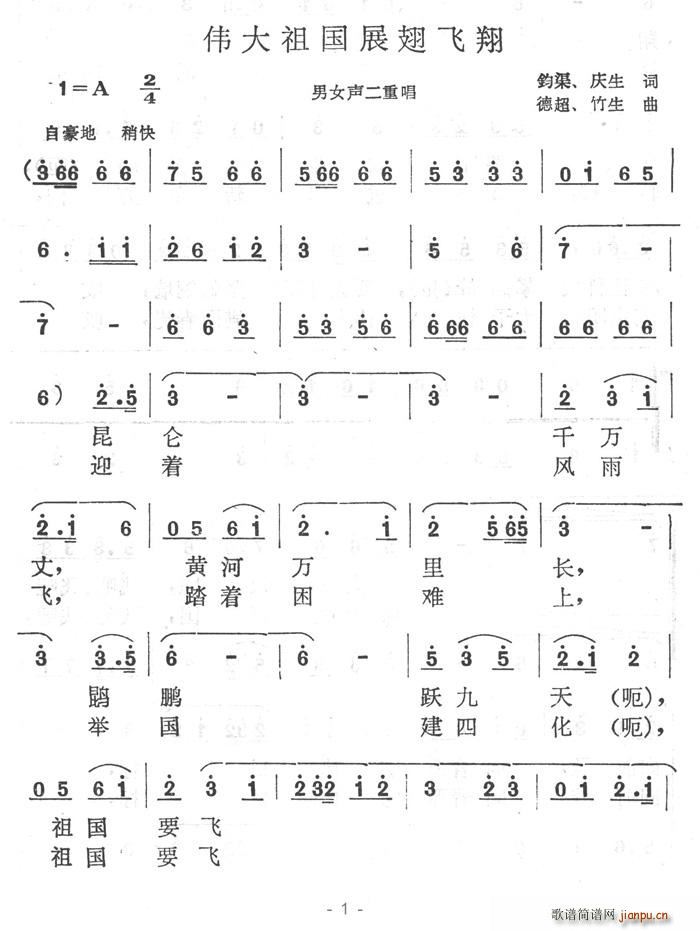 伟大祖国展翅飞翔
1=A 2/4 男女声二重唱 鈞渠、庆生 词
德超、竹生 曲
自豪地 稍快
(3 66 6 6 | 7 5 6 6 | 5 66 6 6 | 5 3 3 3 | 0 1 6 5 |
6 . 1 1 | 2 6 1 2 | 3 - | 5 6 | 7 - |
7 - | 6 6 3 | 5 3 5 6 | 6 66 6 6 | 6 6 6 6 |
6 ) 2.5 | 3 - | 3 - | 3 - | 2 3 1 |
昆 仑 千 万
迎 着 风 雨
2.1 6 | 0 5 6 1 | 2 . 1 | 2 5 65 | 3 - |
丈, 黄 河 万 里 长,
飞, 踏 着 困 难 上,
3 3.5 | 6 - | 6 - | 5 3 5 | 2.1 2 |
鹍 鹏 跃 九 天 (呃),
举 国 建 四 化 (呃),
0 5 6 1 | 2 3 1 | 2 32 1 2 | 3 2 3 | 0 1 2.1 |
祖 国 要 飞
祖 国 要 飞
- 1 -
歌谱简谱网
jianpu.cn